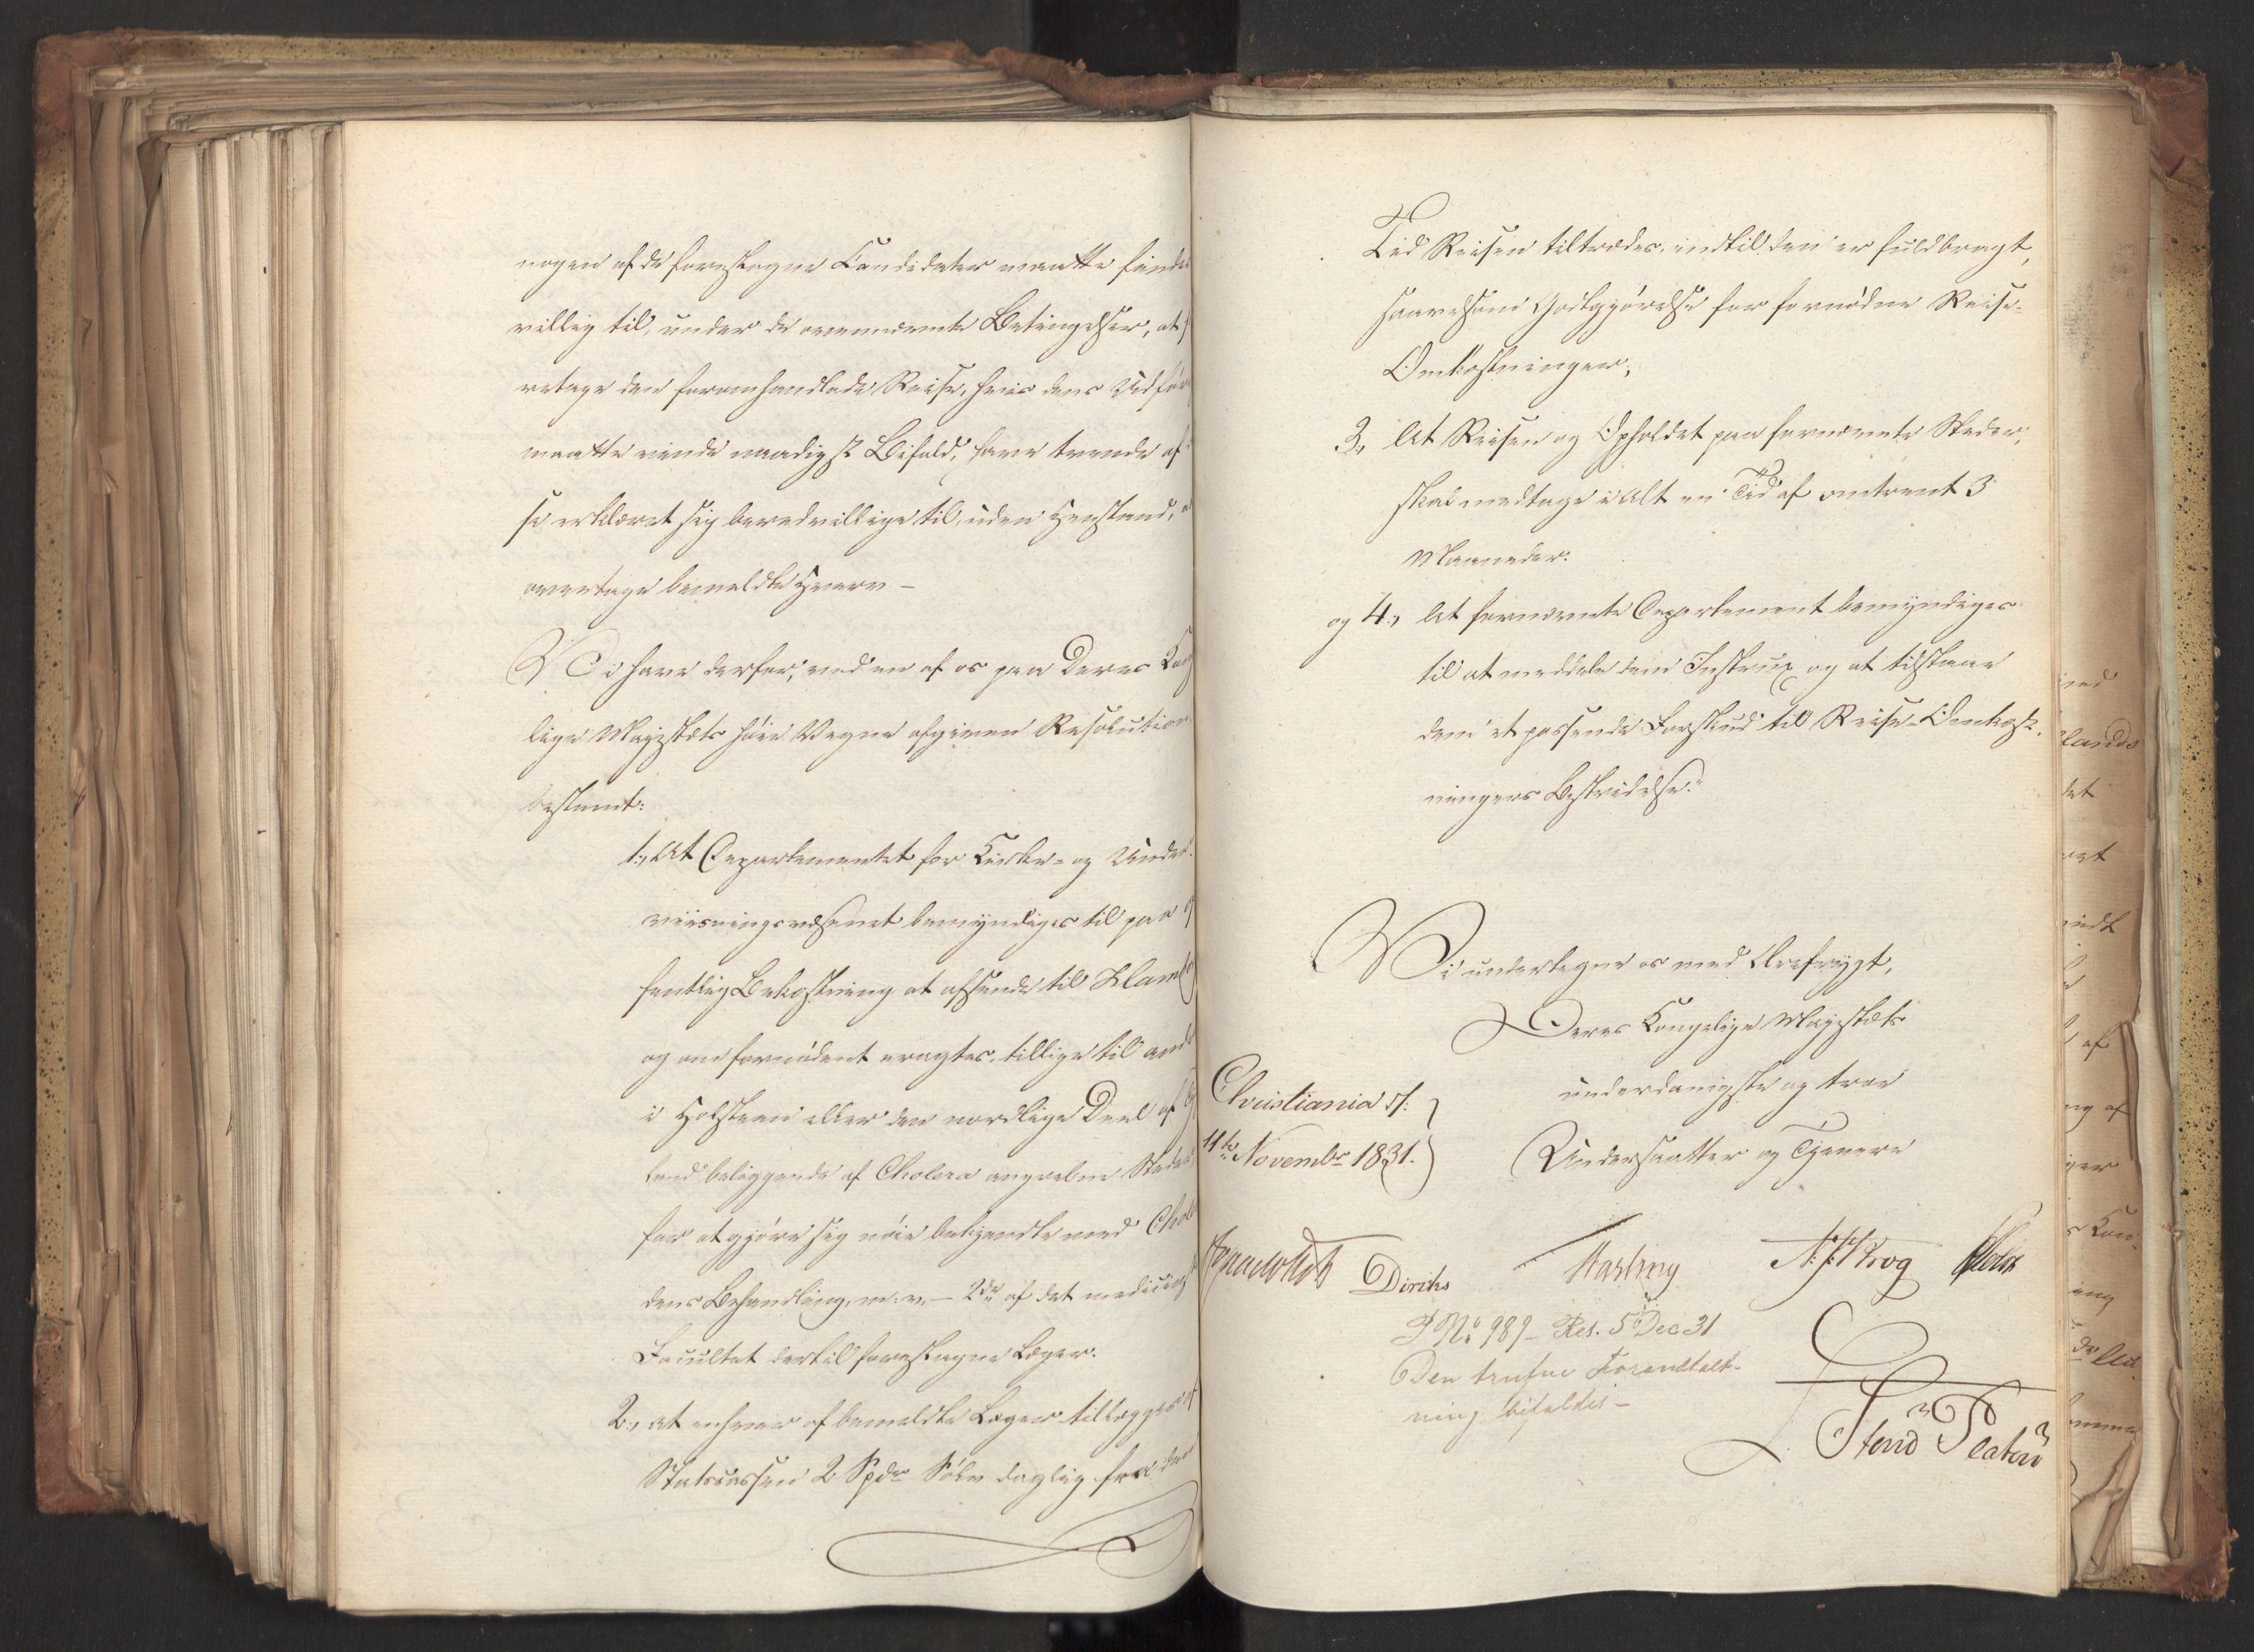 nogen af de foreslagne Candidater maatte findes
villig til, under de ovennævnte Betingelser, at
retage den foromhandlede Reise, hvis dens Udfør
maatte vinde naadigst Bifald, have trende af
se erklæret sig beredvillige til, uden Henstand,
overtage bemeldte Hverv –
Vi have derfor, ved en af os paa Deres Kong
lige Majestæts høie Vegne afgiven Resolution
bestemt:
1., At Departementet for Kirke- og Under
viisningsvæsenet bemyndiges til paa of
fentlig Bekostning at afsende til Hamb
og om fornødent eragtes, tillige til andre
i Holsteen eller den nordlige Deel af
land beliggende af Cholera angrebne Steder
for at gjøre sig nøie bekjendte med Chole
dens Behandling, m: v. – 2de af det medicinske
Facultet dertil foreslagne Læger.
2., at enhver af bemeldte Læger tillægges af
Statscassen 2 Spdr Sølv daglig fra den
Tid Reisen tiltrædes, indtil den er fuldbragt,
saavelsom Godtgjørelse for fornødne Reise-
Omkostninger,
3., At Reisen og Opholdet paa fornævnte Steder,
skal medtage i Alt en Tid af omtrent 3
Maaneder.
og 4., At fornævnte Departement bemyndiges
til at meddele dem Instrux og at tilstaae
dem et passende Forskud til Reise-Omkost-
ningers Bestridelse."
Vi undertegne os med Ærefrygt,
Deres Kongelige Majestæts
underdanigste og troe
Undersaatter og Tjenere
Christiania d:
11te Novembr 1831.
Diriks
N. J. Krog
P No 989 – Res. 5 Dec 31
Den trufne Foranstalt-
ning bifaldes –